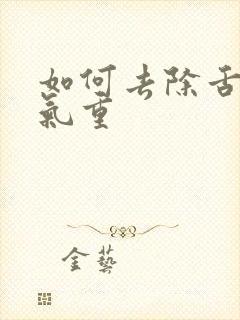 如何去除舌
氣重
金藝